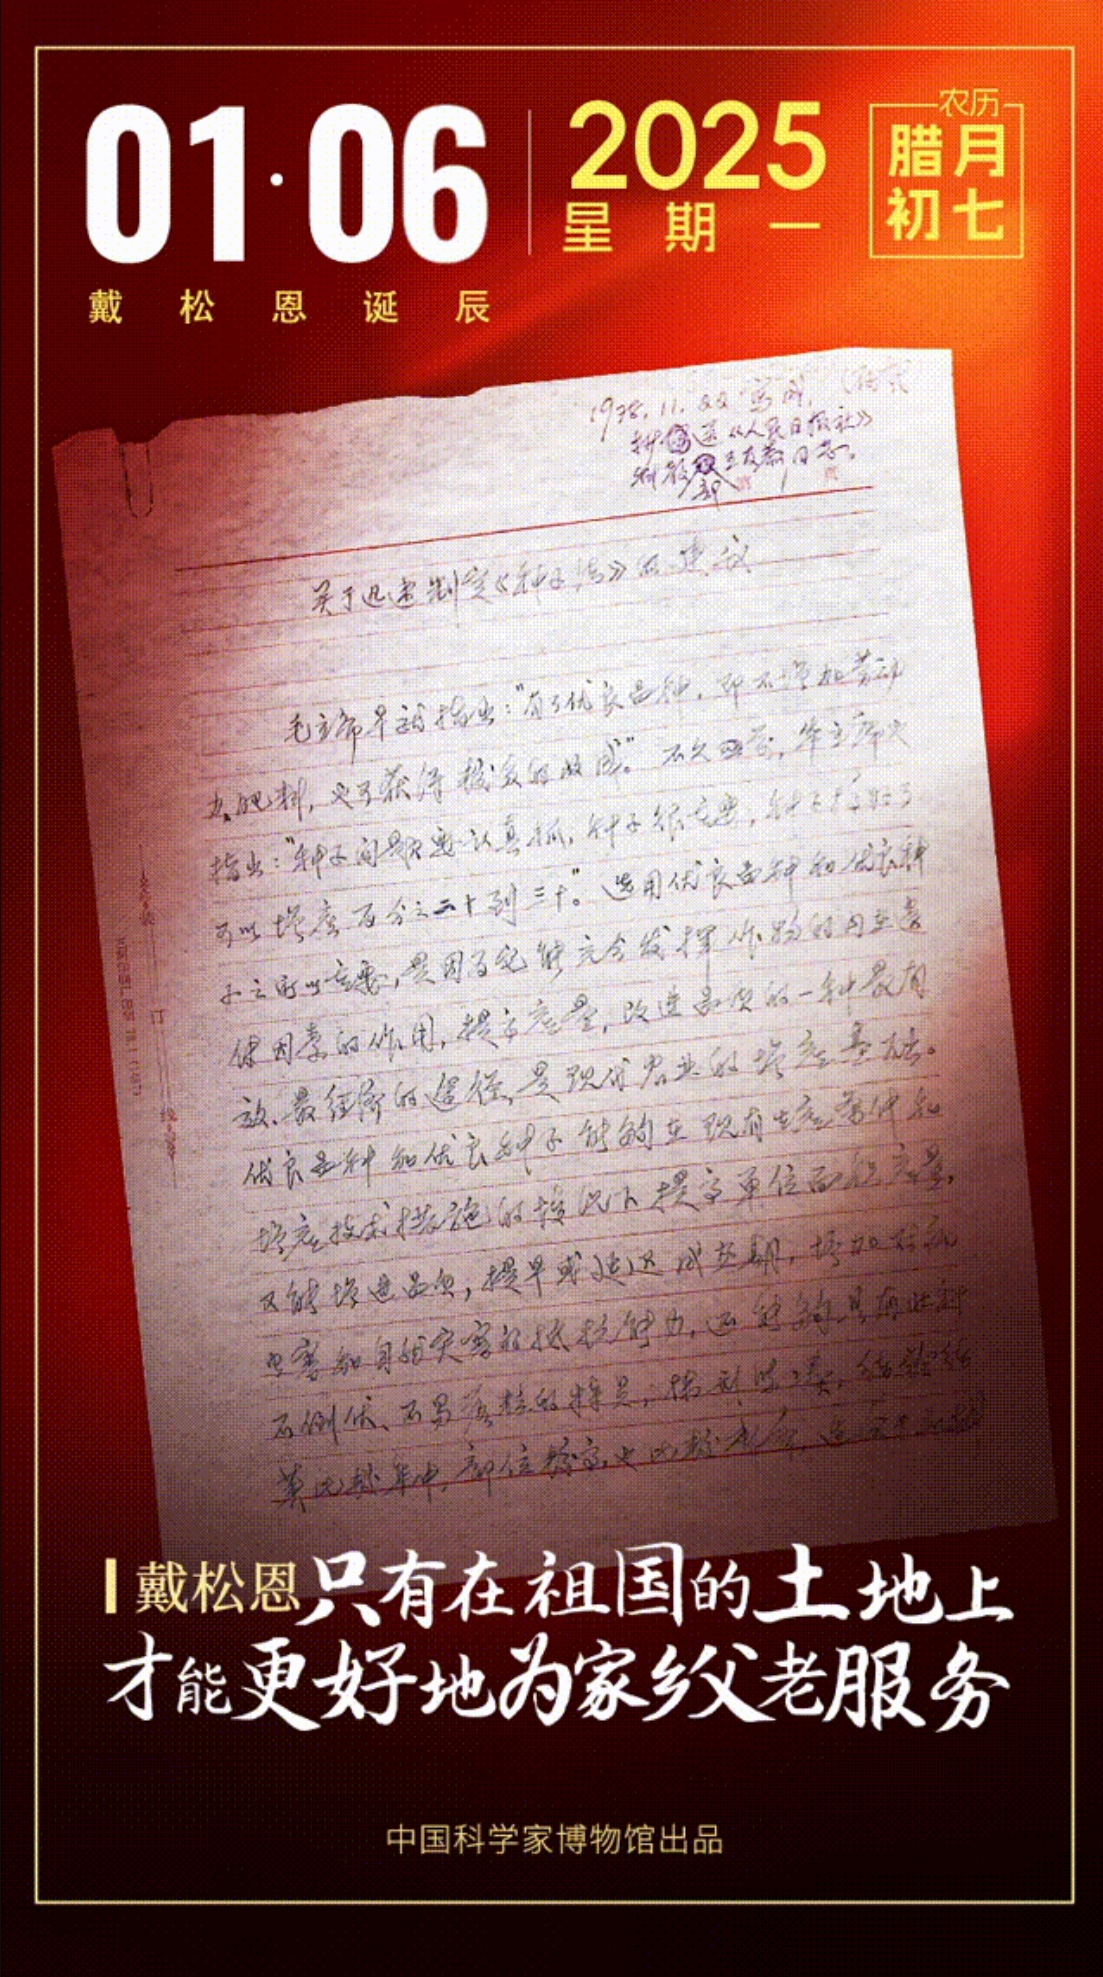 01·06
2025
星期一
农历
腊月
初七
戴松恩诞辰
1978.11.22写成,
抄送《人民日报社》
关于迅速制定《种子法》的建议
毛主席早就指出:"有了优良品种,即不增加劳动
力、肥料,也可获得较多的收成。"不久
指出:"种子问题要认真抓,种子很重要,种子
可以增产百分之二十到三十"。选用优良品种和优良种
子之所以重要,是因为它能充分发挥作物的内在遗
传因素的作用,提高产量,改进品质的一种最有
效、最经济的途径,是现代农业的增产基础。
优良品种和优良种子能够在现有生产条件和
增产技术措施的情况下提高单位面积产量,
又能增进品质,提早或延迟成熟期,增加对病
虫害和自然灾害的抵抗能力,还能够具有
不倒伏、不易落粒的特点;
戴松恩 只有在祖国的土地上
才能更好地为家乡父老服务
中国科学家博物馆出品